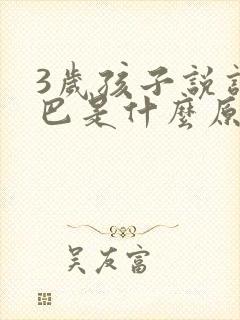 3歲孩子說
巴是什麼原
吳友富